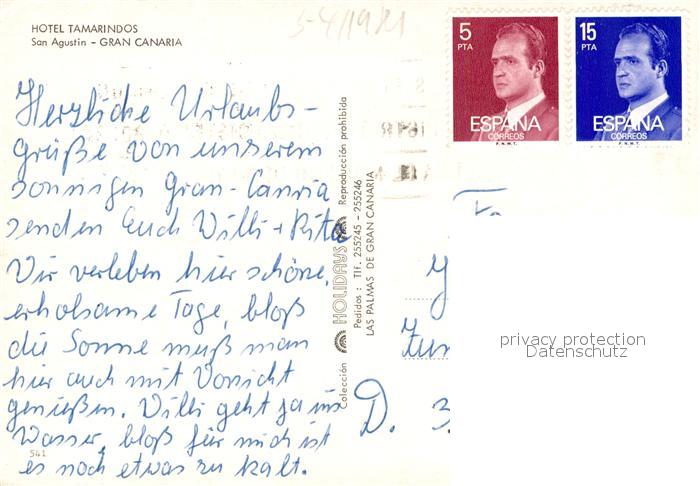 HOTEL TAMARINDOS
San Agustin - GRAN CANARIA
5-4/1981
Herzliche Urlaubs-
grüße von unserem
sonnigen Gran-Canria
senden Euch Willi + Rita
Wir verleben hier schöne,
erholsame Tage, bloß
die Sonne muß man
hier auch mit Vorsicht
genießen. Willi geht ja ins
Wasser, bloß für mich ist
es noch etwas zu kalt.
541
Colección HOLIDAYS Reproducción prohibida
Pedidos: Tlf. 255245 - 255246
LAS PALMAS DE GRAN CANARIA
5
PTA
ESPAÑA
CORREOS
F.N.M.T.
15
PTA
ESPAÑA
CORREOS
F.N.M.T.
D. 3
privacy protection
Datenschutz